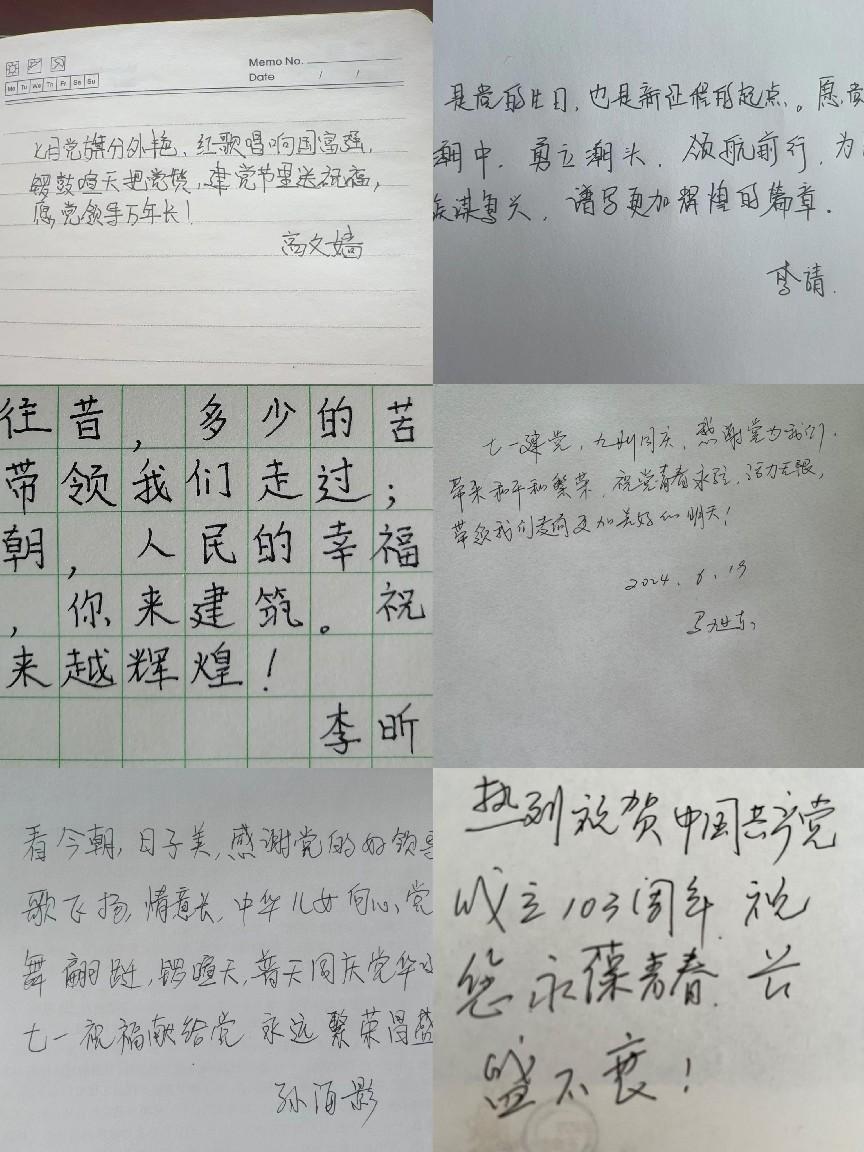 Memo No.
Date / /
Mo Tu We Th Fr Sa Su
七月党旗分外艳，红歌唱响国富强，
锣鼓喧天把党赞，建党节里送祝福，
愿党领导万年长！
高文嫱
是党的生日，也是新征程的起点。愿党
潮中，勇立潮头，领航前行，为
族谋复兴，谱写更加辉煌的篇章.
李靖.
往昔，多少的苦
带领我们走过；
朝，人民的幸福
，你来建筑。祝
来越辉煌！
李昕
七一建党，九州同庆，感谢党为我们，
带来和平和繁荣，祝党青春永驻，活力无限，
带领我们走向更加美好的明天！
2024.6.19
看今朝，日子美，感谢党的好领导
歌飞扬，情意长，中华儿女向心，党
舞翩跹，锣喧天，普天同庆党华
七一祝福献给党 永远繁荣昌盛
孙海影
热烈祝贺中国共产党
成立103周年 祝
您永葆青春 兴
盛不衰！